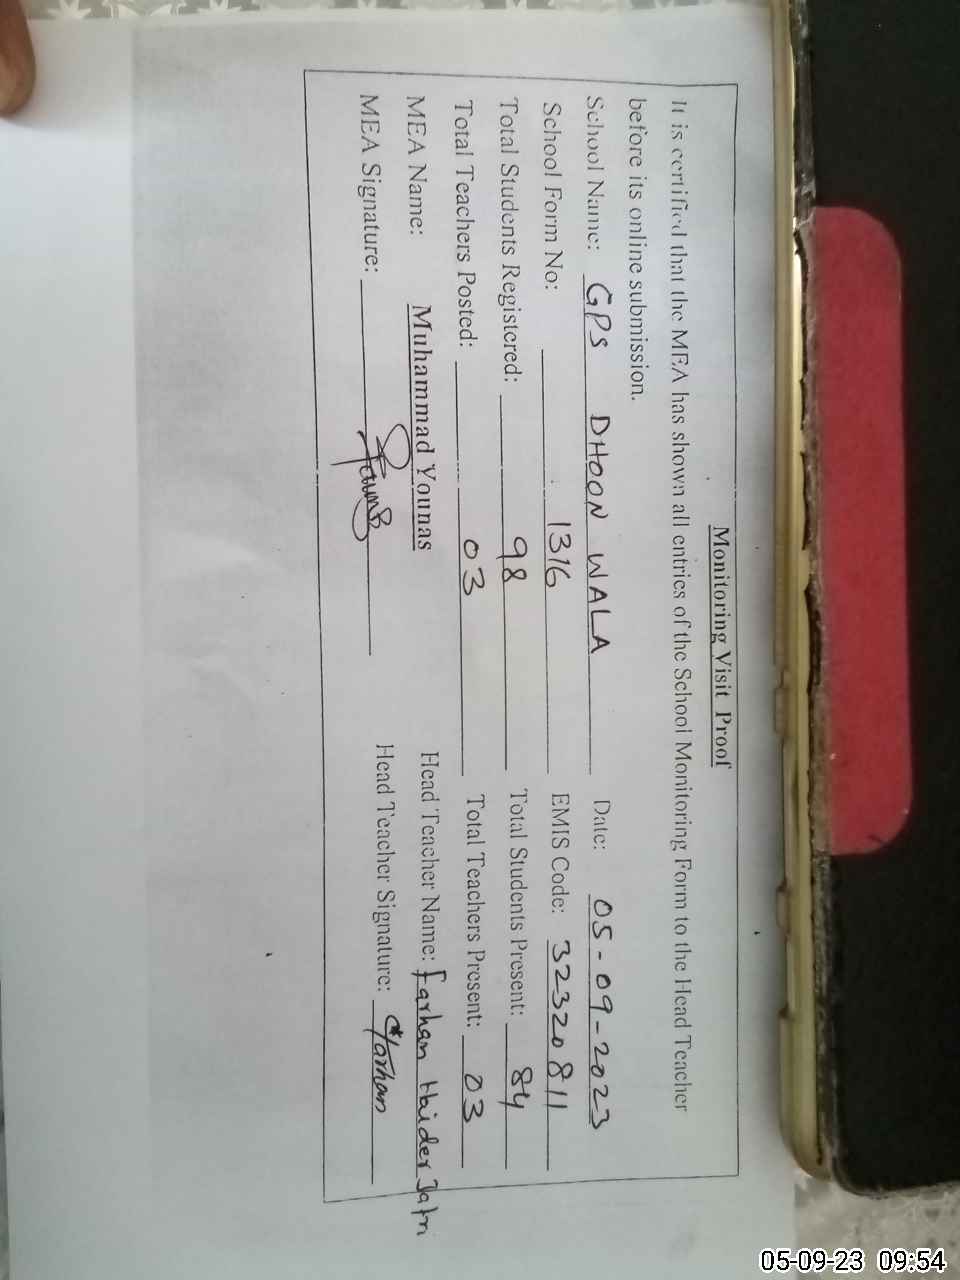 Monitoring Visit Proof
It is certified that the MEA has shown all entries of the School Monitoring Form to the Head Teacher
before its online submission.
School Name: GPS DHOON WALA Date: 05-09-2023
School Form No: 1316 EMIS Code: 32320811
Total Students Registered: 98 Total Students Present: 84
Total Teachers Posted: 03 Total Teachers Present: 03
MEA Name: Muhammad Younas Head Teacher Name: Farhan Haider Jatri
MEA Signature: Younas Head Teacher Signature: Farhan
05-09-23 09:54